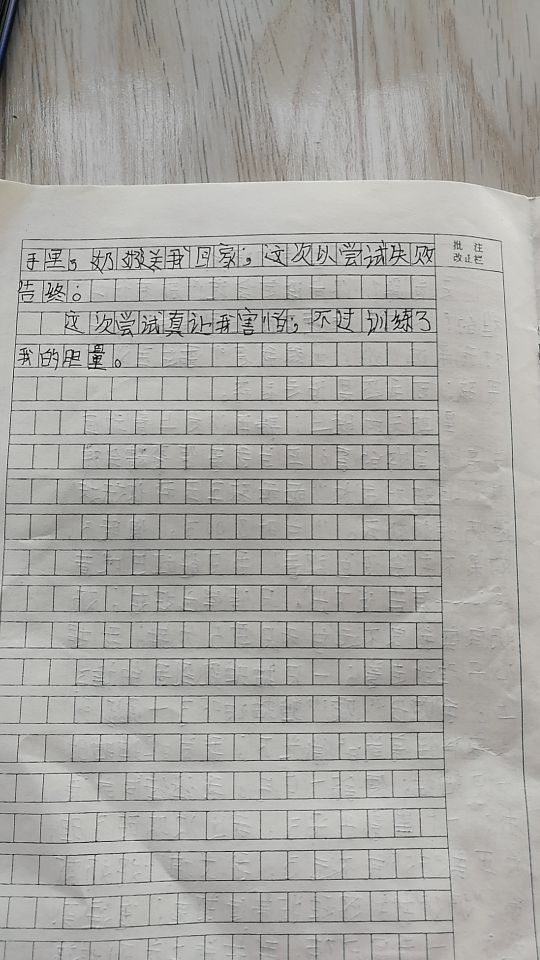 手里，奶奶关我回家，这次以尝试失败
告终。
这次尝试真让我害怕，不过训练了
我的胆量。
批注
改正栏